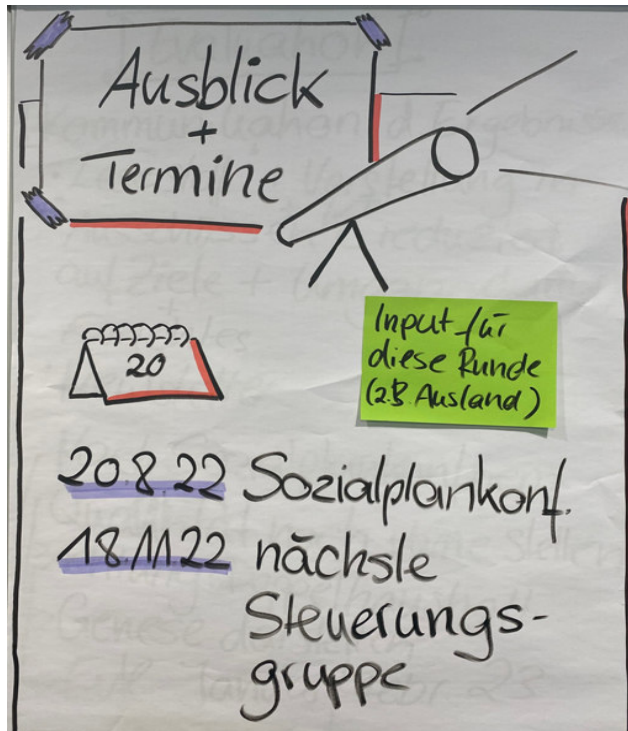 Ausblick
+
Termine
Input für
diese Runde
(z.B. Ausland)
20
20.8.22 Sozialplankonf.
18.11.22 nächste
Steuerungs-
gruppe